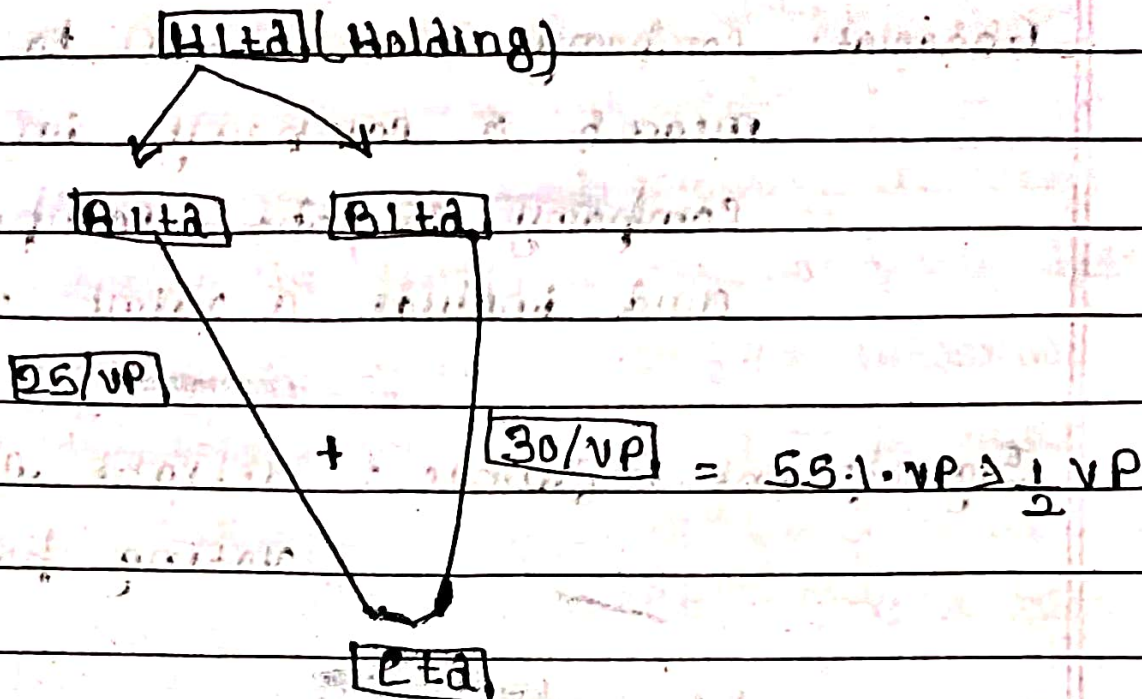 H Ltd (Holding)
A Ltd B Ltd
25/VP
+ 30/VP = 55.1. VP > 1/2 VP
C td